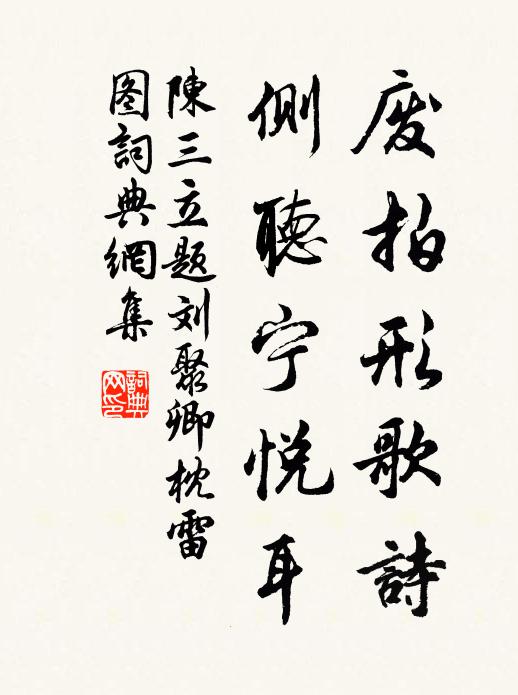 废拍形歌詩
側聽宁悦耳
陳三立題刘聚卿枕雷
图詞典網集
詞典网印